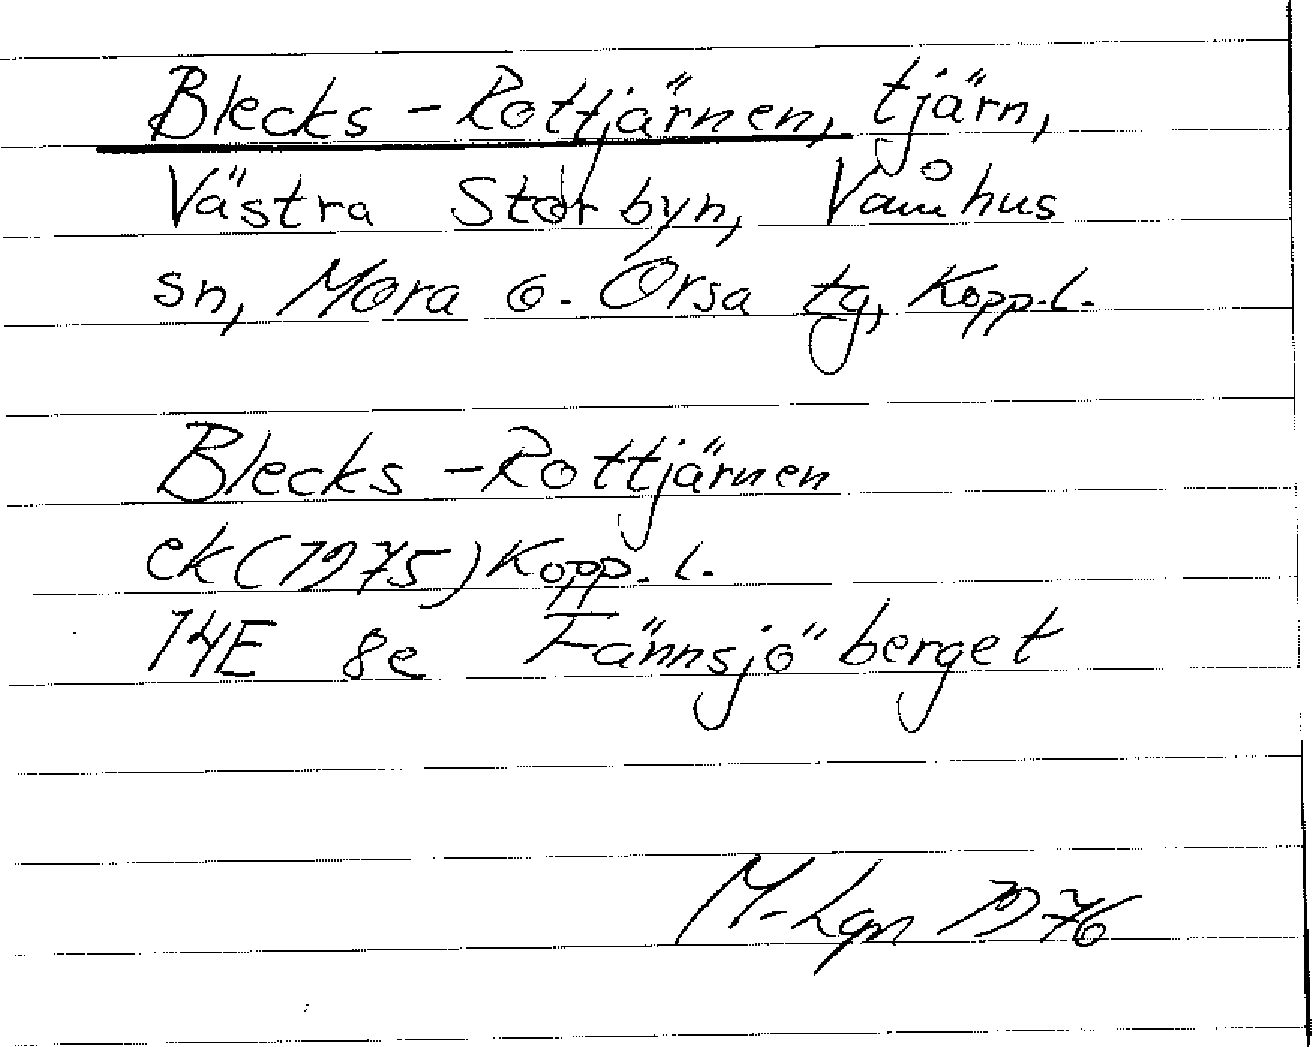 Blecks-Rottjärnen, tjärn,
Västra Storbyn, Våmhus
sn, Mora o. Orsa tg, Kopp.l.
Blecks-Rottjärnen
ek (1975) Kopp.l.
14E 8e Fännsjöberget
M-Lgn 1976